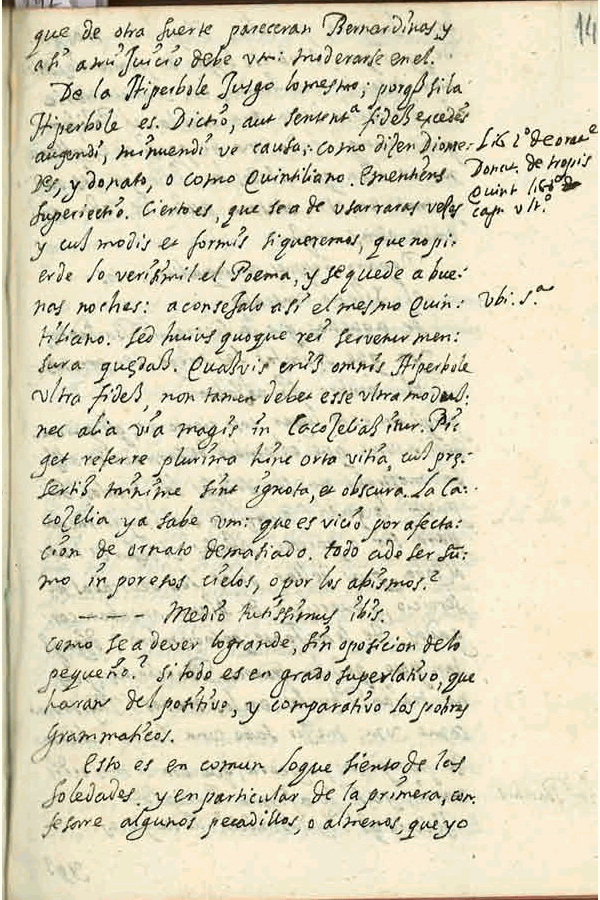 14
que de otra suerte pareceran Bernardinas, y
asi a mi Juicio debe vm: moderarse en el.
De la Hiperbole Jusgo lo mesmo; porqß si la
Hiperbole es. Dictio, aut sententª fideß excedēs
augendi, minuendi ve causa; como dizen Diome:
des, y donato, o como Quintiliano. Ementiens
superiectio. Cierto es, que se a de usar raras veses
y cuß modis et formis si queremos, que no pi:
erde lo verisimil el Poema, y se quede a bue:
nas noches: aconsejalo asi el mesmo Quin:
tiliano. Sed huius quoque rei servetur men:
sura quędaß. Quaßvis eniß omnis Hiperbole
ultra fideß, non tamen debet esse ultra moduß:
nec alia via magis in Cacozeliaß itur. Pi:
get referre plurima hinc orta vitia, cuß pre:
sertiß minime sint ignota, et obscura. La Ca:
cozelia ya sabe vm: que es vicio por afecta:
cion de ornato demasiado. todo a de ser sũ:
mo in por esos cielos, o por los abismos?
- - - Medio tutissimus ibis.
como se a de ver lo grande, sin oposicion de lo
pequeño? Si todo es en grado superlativo, que
haran del positivo, y comparativo los pobres
Grammaticos.
Esto es en comun lo que siento de las
soledades, y en particular de la primera, con:
fesare algunos pecadillos, o almenos, que yo
Lib 2º de orane
Donat. de tropis
Quint lib 8º
cap. ultº
Ubi. sª